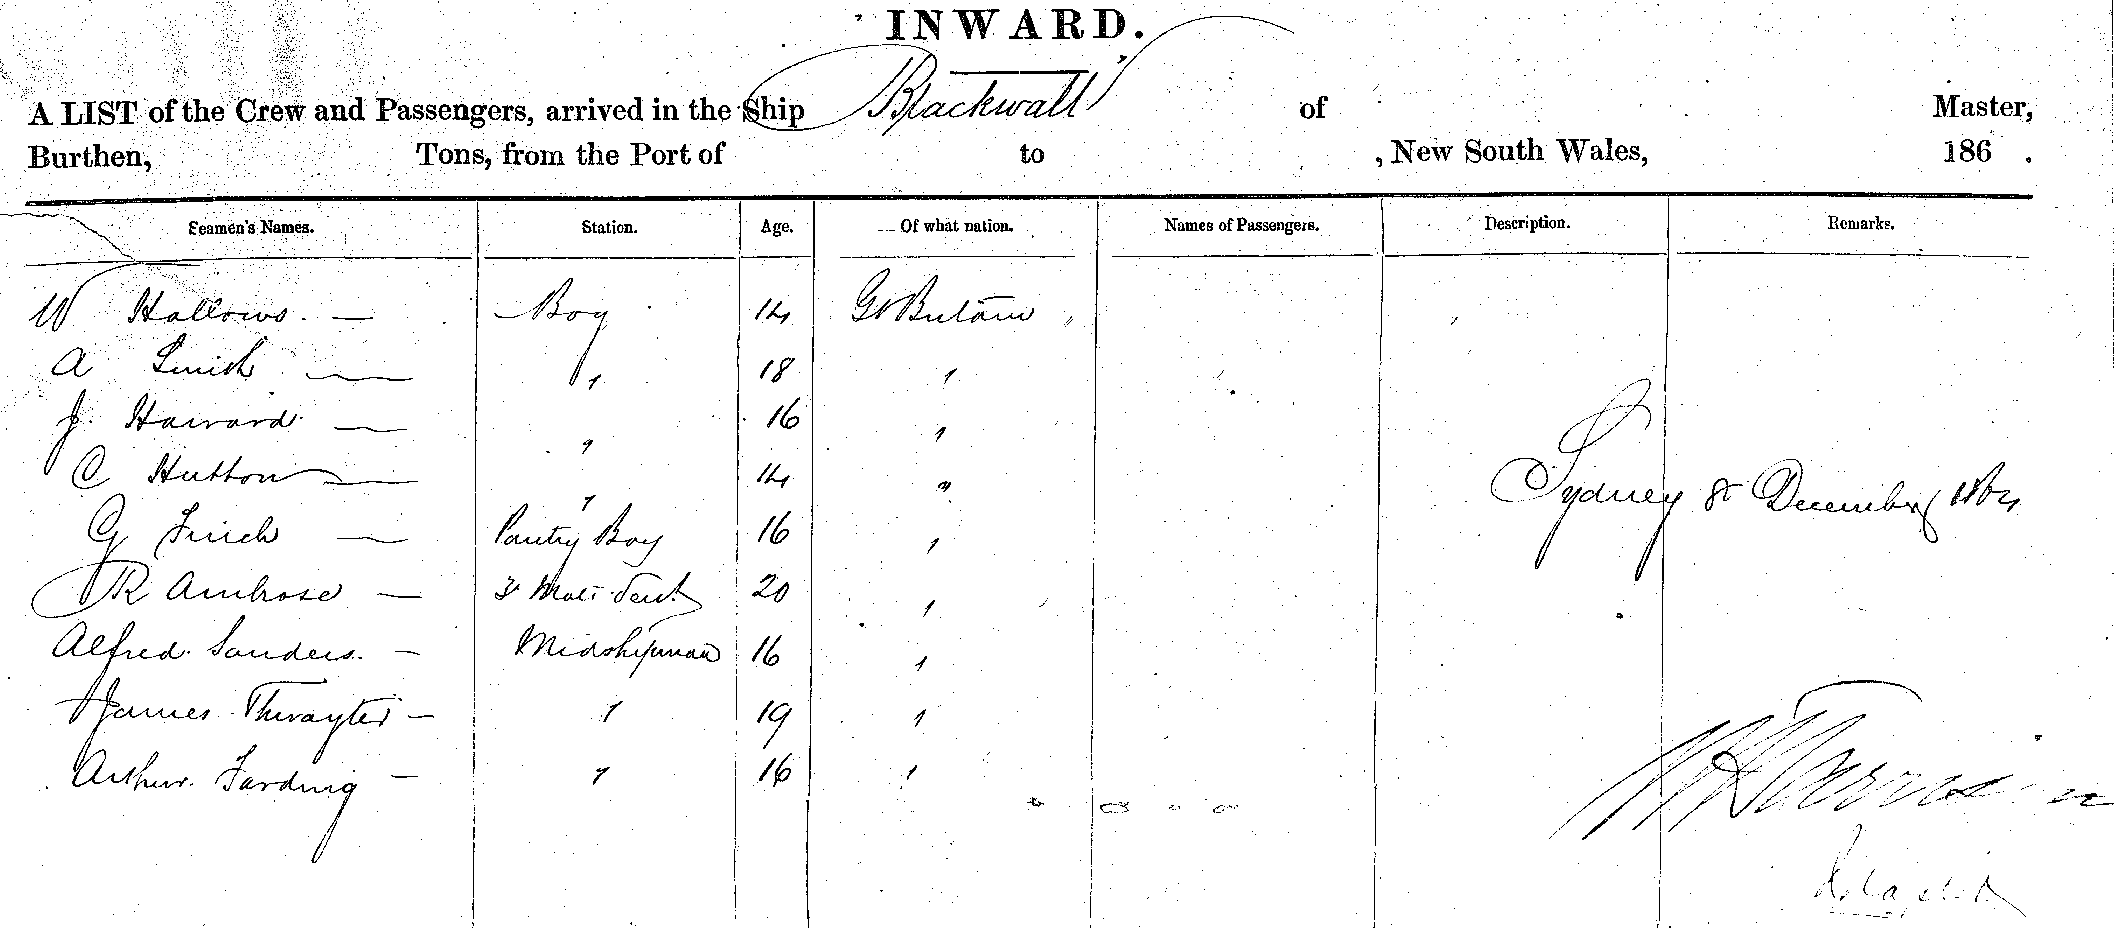 INWARD.
A LIST of the Crew and Passengers, arrived in the Ship Blackwall of Master,
Burthen, Tons, from the Port of to , New South Wales, 186 .
Seamen's Names. Station. Age. Of what nation. Names of Passengers. Description. Remarks.
W Hallows. — Boy 14 Gt Britain "
A Smith — " 18 "
J. Harvard — " 16 "
C Hutton — " 14 "
G Finch — Pantry Boy 16 "
Sydney 8 December 1864
R Ambrose — 20 "
Alfred Sanders. — Midshipman 16 "
James Thwaytes — " 19 "
Arthur Farding — " 16 "